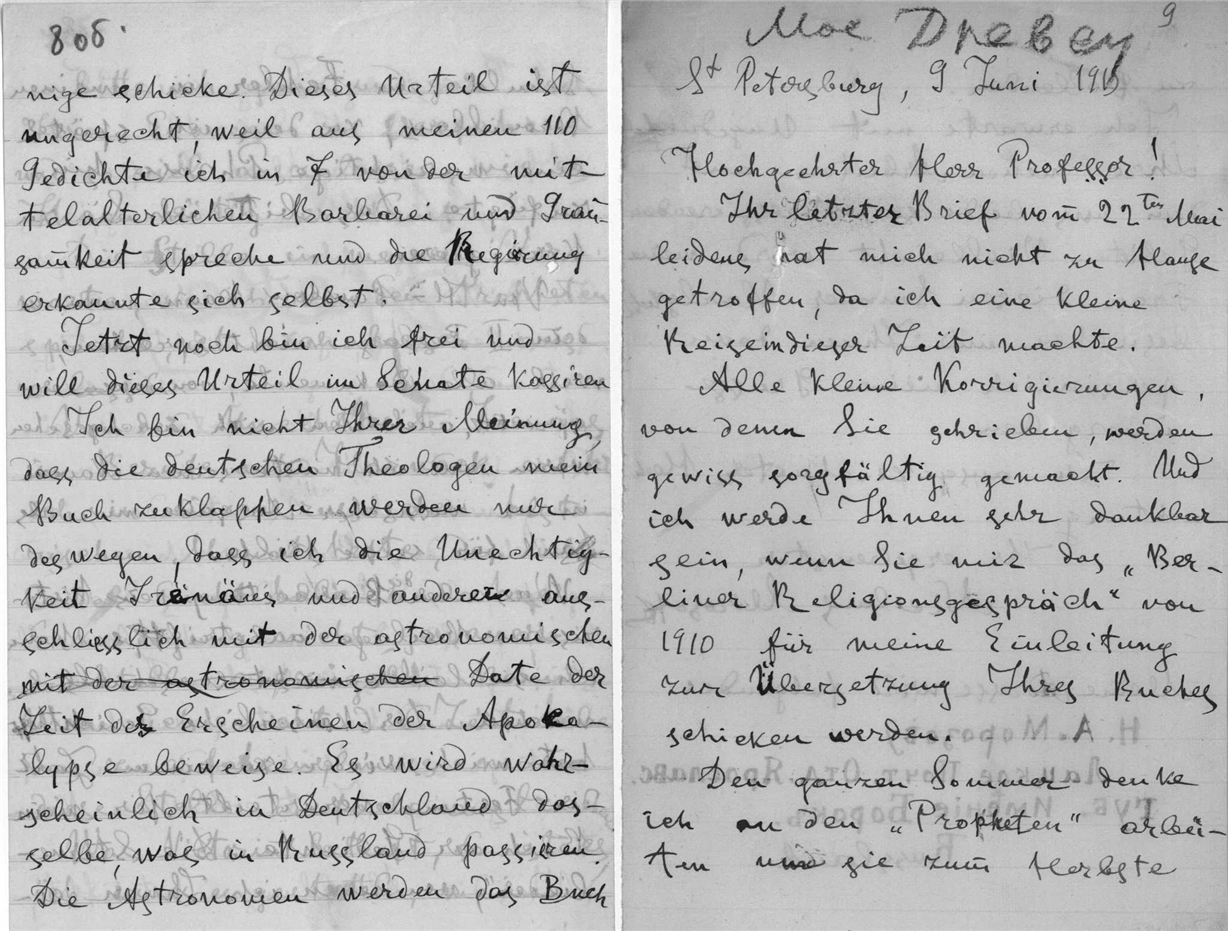 8 об.
nige schicke. Dieses Urteil ist
ungerecht, weil aus meinen 110
Gedichte ich in 7 von der mit-
telalterlichen Barbarei und Grau-
samkeit spreche und die Regierung
erkannte sich selbst.
Jetzt noch bin ich frei und
will dieses Urteil im Senate kassiren
Ich bin nicht Ihrer Meinung,
dass die deutschen Theologen mein
Buch zuklappen werden nur
deswegen, dass ich die Unechtig-
keit Irenäus und anderen aus-
schliesslich mit der astronomischen
mit der astronomischen Date der
Zeit des Erscheinen der Apoka-
lypse beweise. Es wird wahr-
scheinlich in Deutschland das-
selbe, was in Russland, passiren.
Die Astronomen werden das Buch
9
Мое Древсу
St Petersburg, 9 Juni
Hochgeehrter Herr Professor!
Ihr letzter Brief vom 22ten Mai
leidens hat mich nicht zu Hause
getroffen, da ich eine kleine
Reise in dieser Zeit machte.
Alle kleine Korrigierungen,
von denen Sie schrieben, werden
gewiss sorgfältig gemacht. Und
ich werde Ihnen sehr dankbar
sein, wenn Sie mir das „Ber-
liner Religionsgespräch“ von
1910 für meine Einleitung
zur Übersetzung Ihres Buches
schicken werden.
Den ganzen Sommer denke
ich an den „Propheten“ arbei-
ten und sie zum Herbste